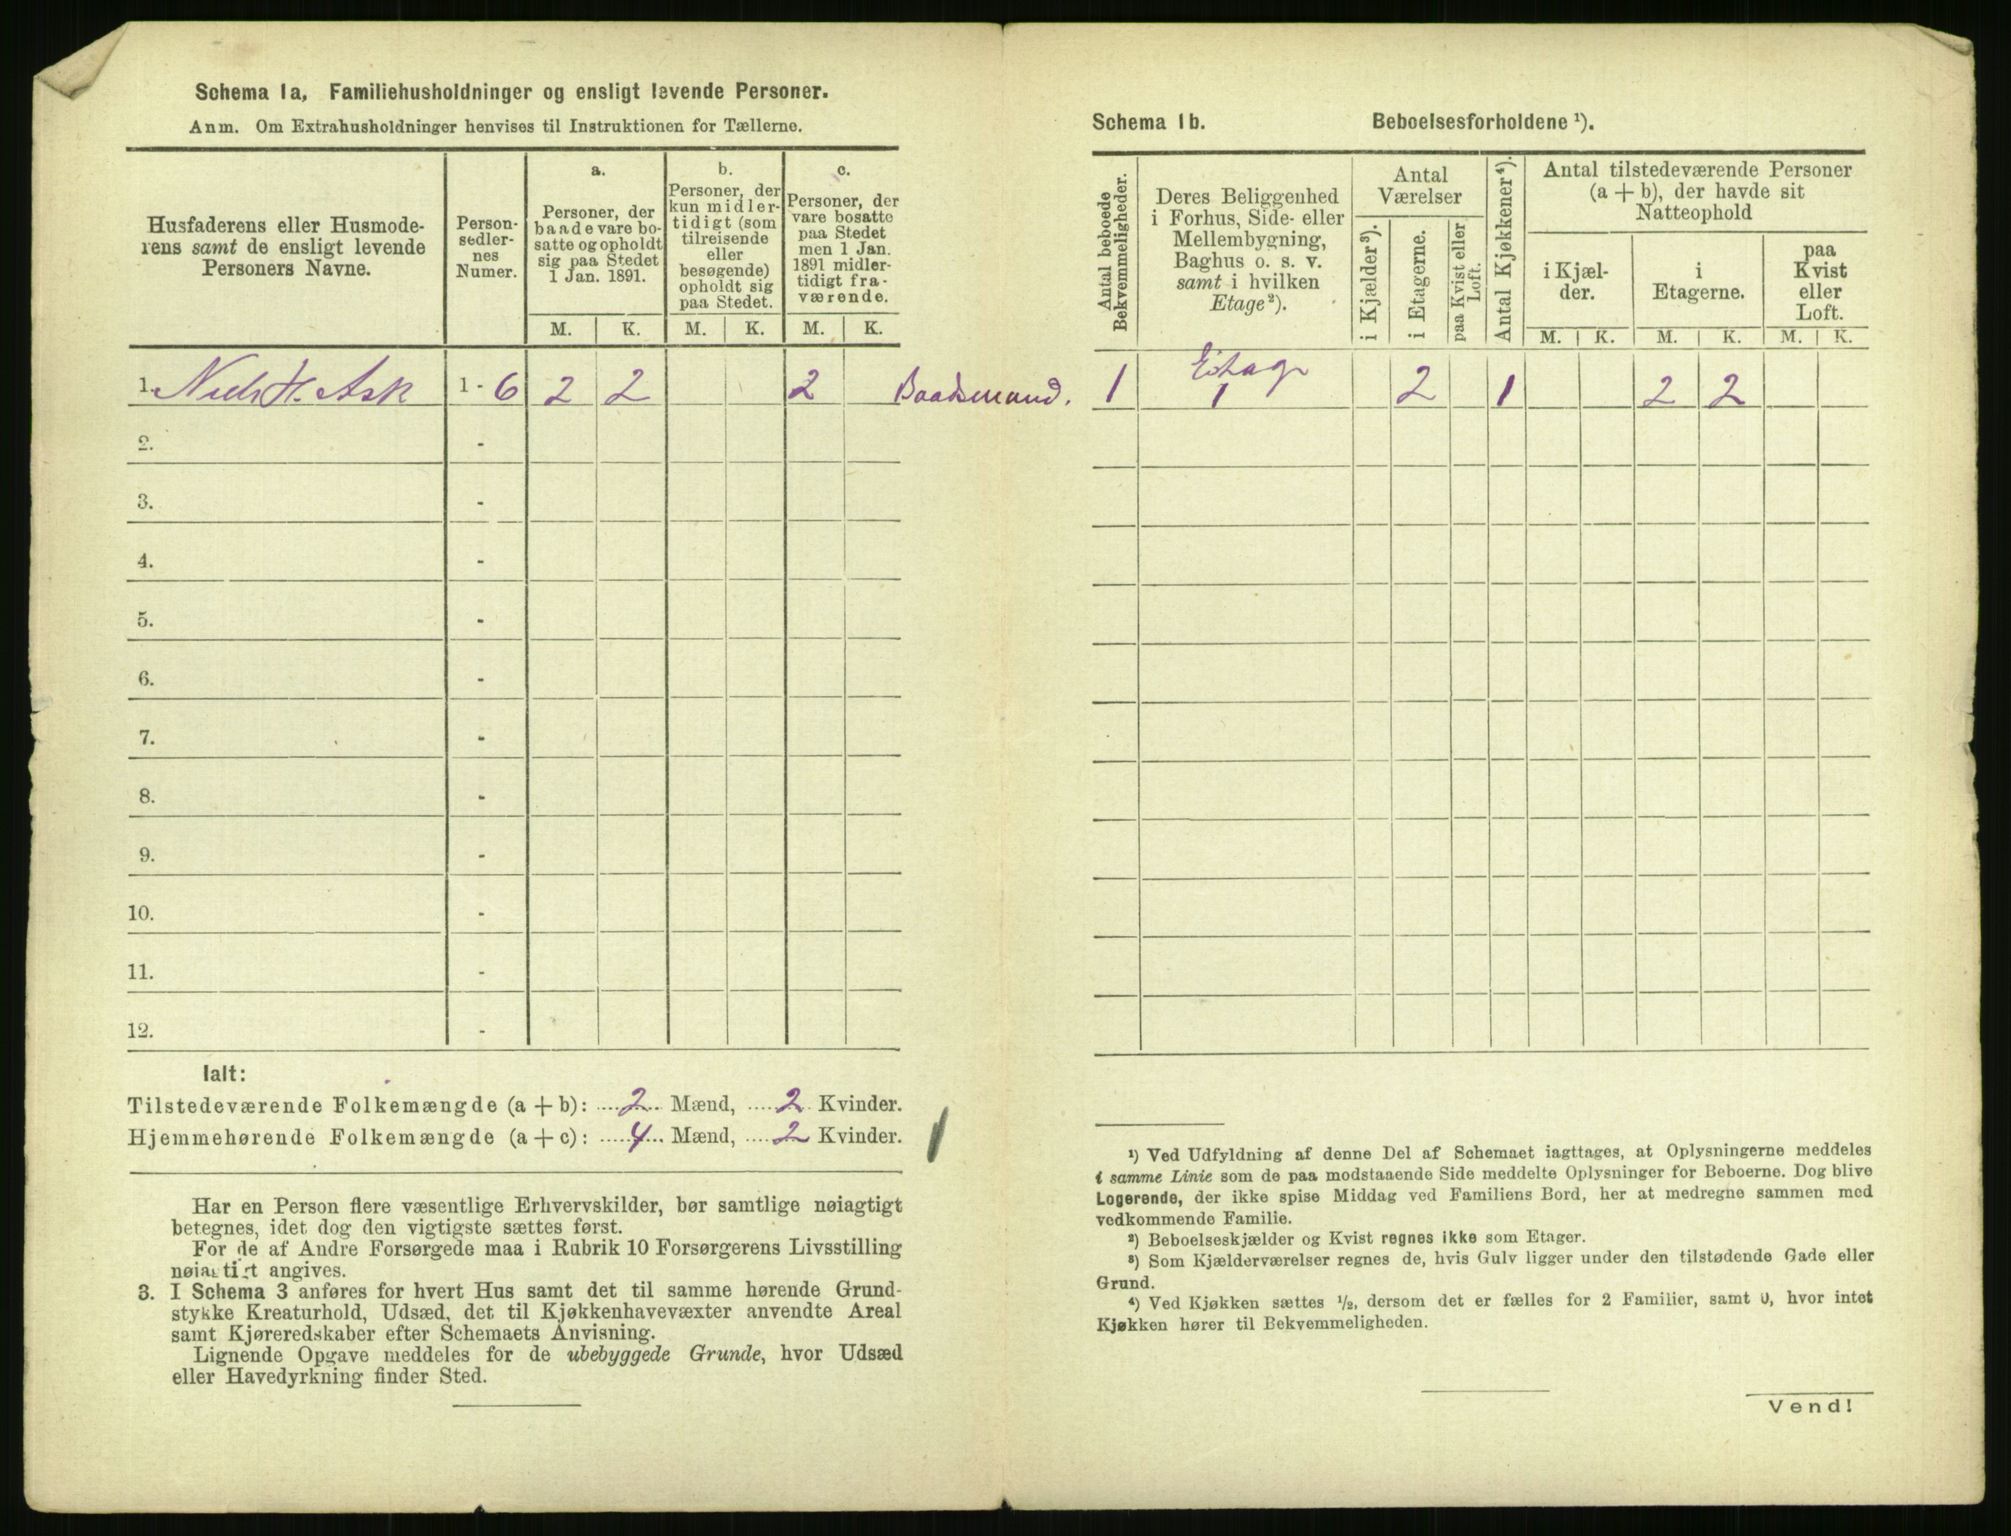 Schema 1a, Familiehusholdninger og ensligt levende Personer.
Anm. Om Extrahusholdninger henvises til Instruktionen for Tællerne.
Husfaderens eller Husmode-
rens samt de ensligt levende
Personers Navne.
Person-
sedler-
nes
Numer.
a.
Personer, der
baade vare bo-
satte og opholdt
sig paa Stedet
1 Jan. 1891.
b.
Personer, der
kun midler-
tidigt (som
tilreisende
eller
besøgende)
opholdt sig
paa Stedet.
c.
Personer, der
vare bosatte
paa Stedet
men 1 Jan.
1891 midler-
tidigt fra-
værende.
M. K. M. K. M. K.
1. Niels H. Ask 1 - 6 2 2 2 Baadsmand.
2. -
3. -
4. -
5. -
6. -
7. -
8. -
9. -
10. -
11. -
12. -
Ialt:
Tilstedeværende Folkemængde (a + b): 2 Mænd, 2 Kvinder.
Hjemmehørende Folkemængde (a + c): 4 Mænd, 2 Kvinder.
Har en Person flere væsentlige Erhvervskilder, bør samtlige nøiagtigt
betegnes, idet dog den vigtigste sættes først.
For de af Andre Forsørgede maa i Rubrik 10 Forsørgerens Livsstilling
nøiagtigt angives.
3. I Schema 3 anføres for hvert Hus samt det til samme hørende Grund-
stykke Kreaturhold, Udsæd, det til Kjøkkenhavevæxter anvendte Areal
samt Kjøreredskaber efter Schemaets Anvisning.
Lignende Opgave meddeles for de ubebyggede Grunde, hvor Udsæd
eller Havedyrkning finder Sted.
Schema 1b. Beboelsesforholdene ¹).
Antal beboede
Bekvemmeligheder.
Deres Beliggenhed
i Forhus, Side- eller
Mellembygning,
Baghus o. s. v.
samt i hvilken
Etage ²).
Antal
Værelser
i Kjælder ³).
i Etagerne.
paa Kvist eller
Loft.
Antal Kjøkkener ⁴).
Antal tilstedeværende Personer
(a + b), der havde sit
Natteophold
i Kjæl-
der.
i
Etagerne.
paa
Kvist
eller
Loft.
M. K. M. K. M. K.
1 Etage 1 2 1 2 2
¹) Ved Udfyldning af denne Del af Schemaet iagttages, at Oplysningerne meddeles
i samme Linie som de paa modstaaende Side meddelte Oplysninger for Beboerne. Dog blive
Logerende, der ikke spise Middag ved Familiens Bord, her at medregne sammen med
vedkommende Familie.
²) Beboelseskjælder og Kvist regnes ikke som Etager.
³) Som Kjælderværelser regnes de, hvis Gulv ligger under den tilstødende Gade eller
Grund.
⁴) Ved Kjøkken sættes ½, dersom det er fælles for 2 Familier, samt 0, hvor intet
Kjøkken hører til Bekvemmeligheden.
Vend!